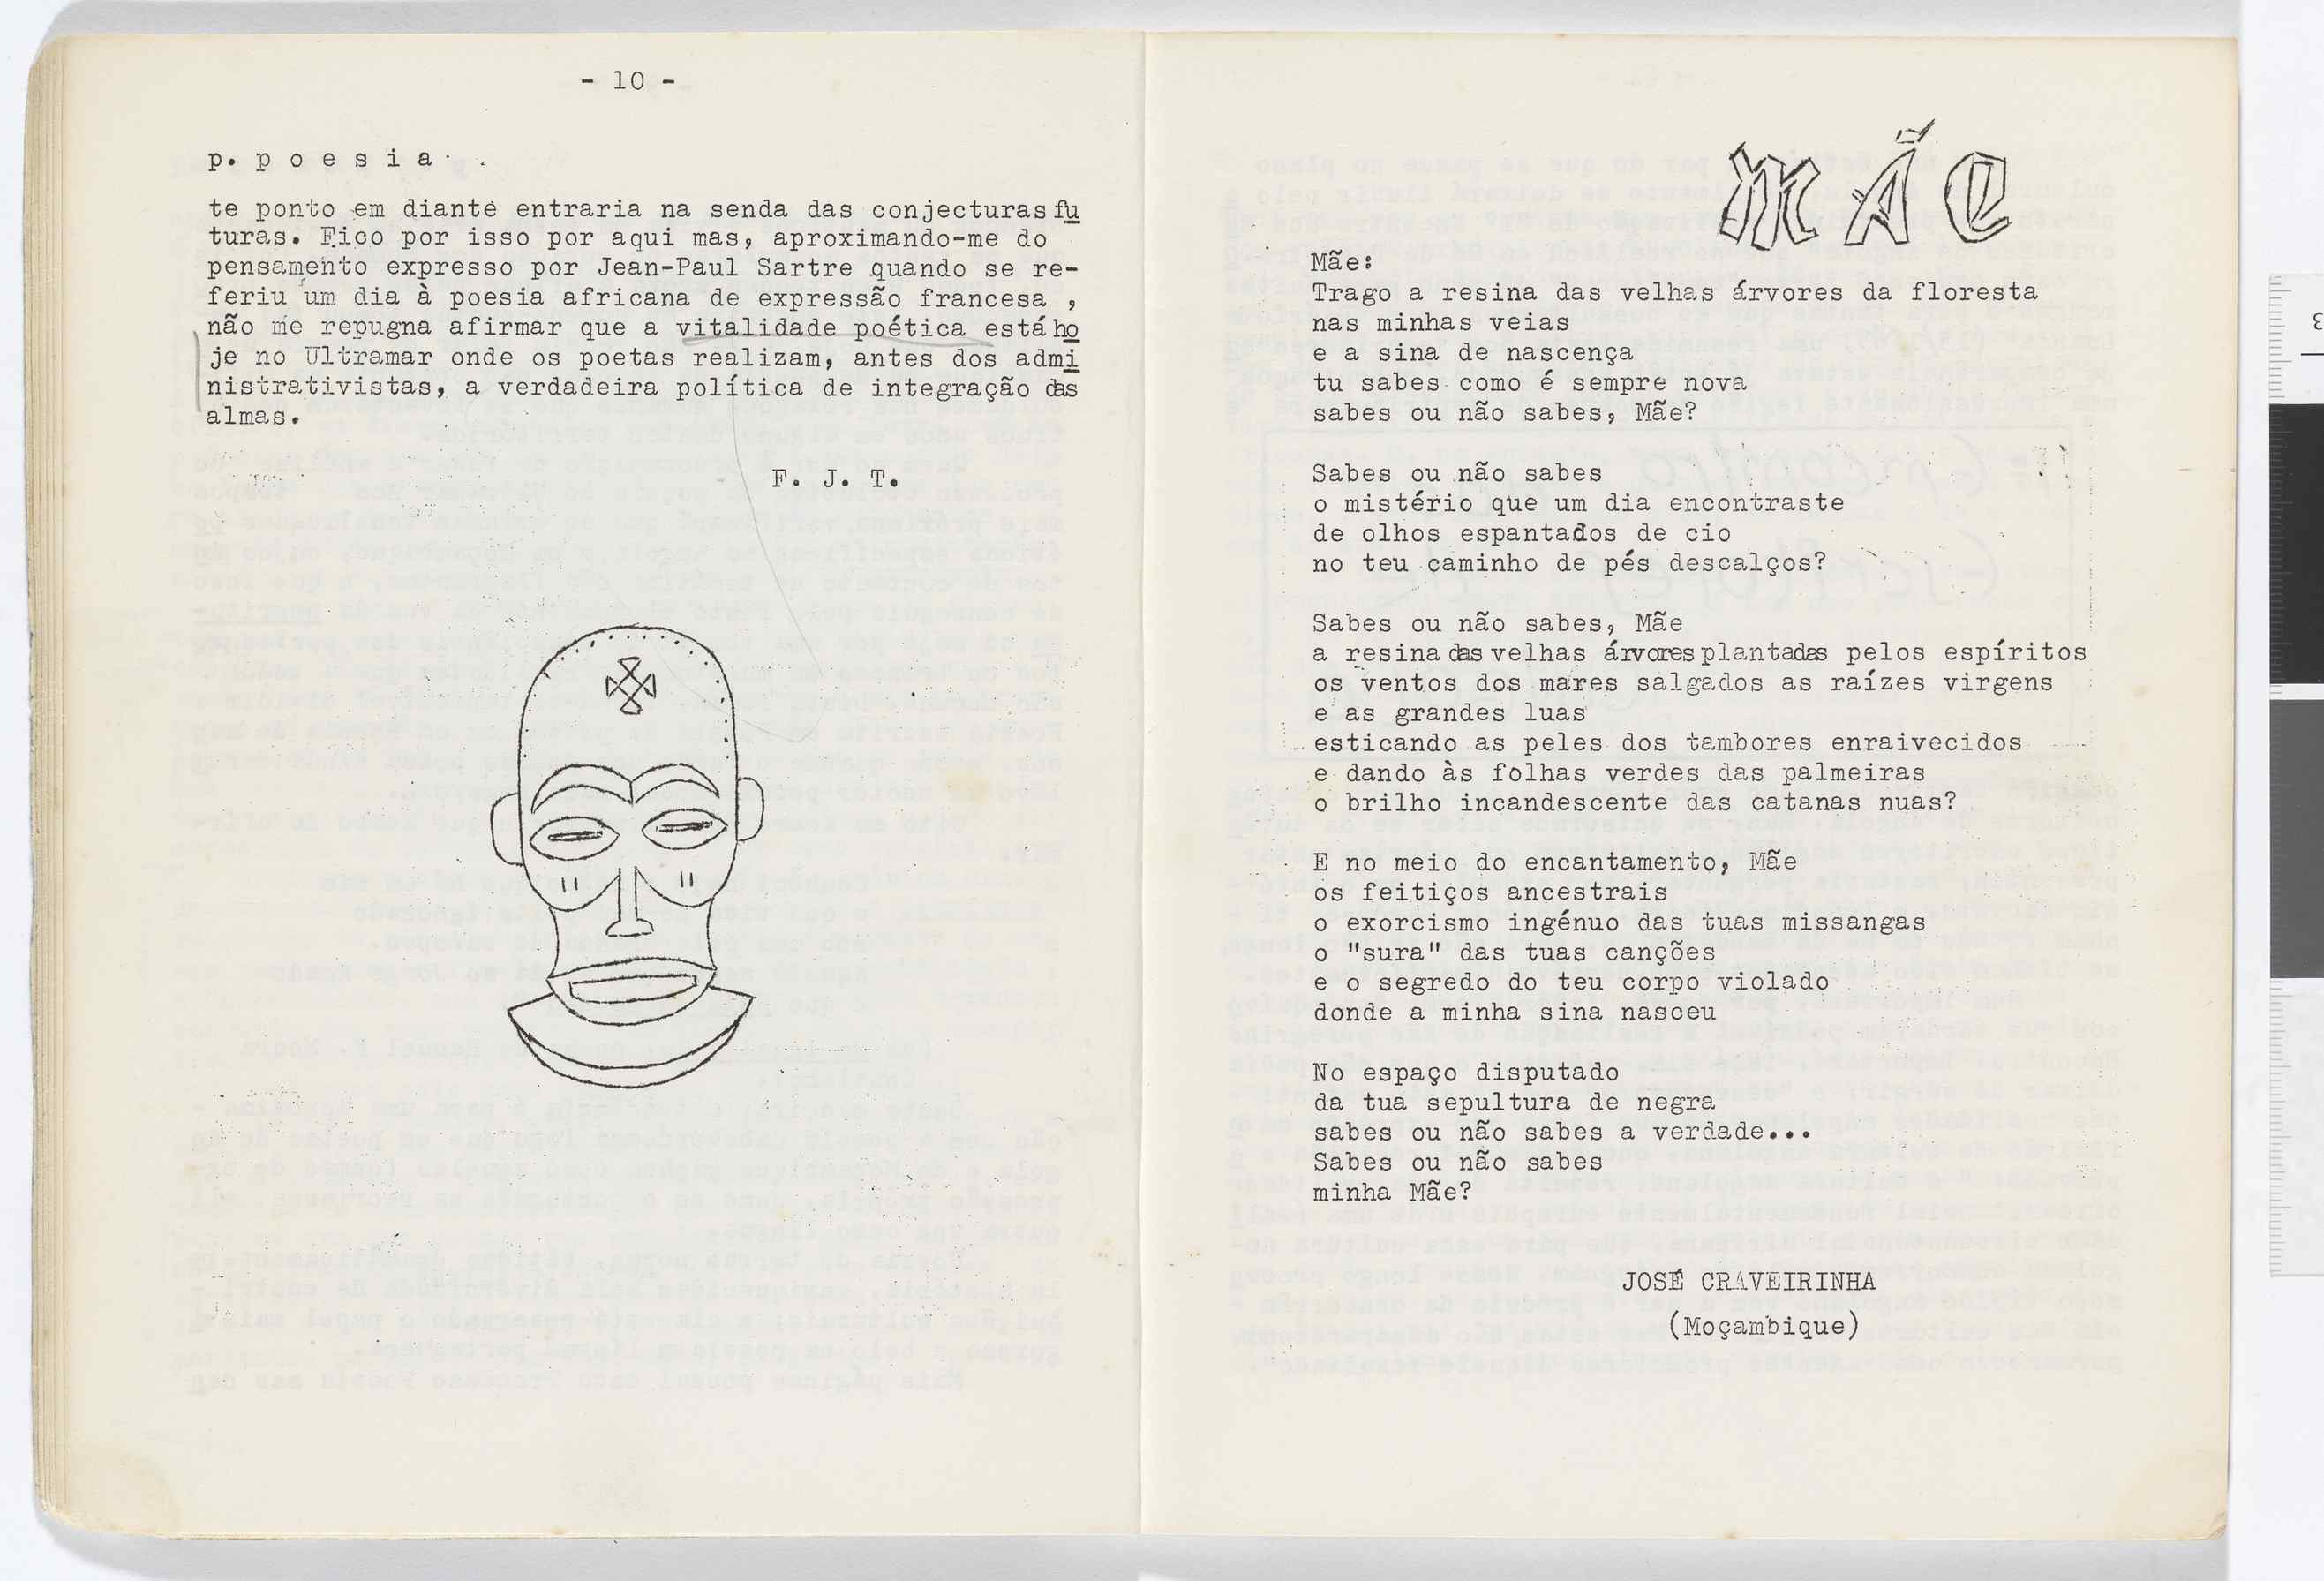 - 10 -
p. poesia
te ponto em diante entraria na senda das conjecturas fu
turas. Fico por isso por aqui mas, aproximando-me do
pensamento expresso por Jean-Paul Sartre quando se re-
feriu um dia à poesia africana de expressão francesa ,
não me repugna afirmar que a vitalidade poética está ho
je no Ultramar onde os poetas realizam, antes dos admi
nistrativistas, a verdadeira política de integração das
almas.
F. J. T.
MÃE
Mãe:
Trago a resina das velhas árvores da floresta
nas minhas veias
e a sina de nascença
tu sabes como é sempre nova
sabes ou não sabes, Mãe?
Sabes ou não sabes
o mistério que um dia encontraste
de olhos espantados de cio
no teu caminho de pés descalços?
Sabes ou não sabes, Mãe
a resina das velhas árvores plantadas pelos espíritos
os ventos dos mares salgados as raízes virgens
e as grandes luas
esticando as peles dos tambores enraivecidos
e dando às folhas verdes das palmeiras
o brilho incandescente das catanas nuas?
E no meio do encantamento, Mãe
os feitiços ancestrais
o exorcismo ingénuo das tuas missangas
o "sura" das tuas canções
e o segredo do teu corpo violado
donde a minha sina nasceu
No espaço disputado
da tua sepultura de negra
sabes ou não sabes a verdade...
Sabes ou não sabes
minha Mãe?
JOSÉ CRAVEIRINHA
(Moçambique)
3